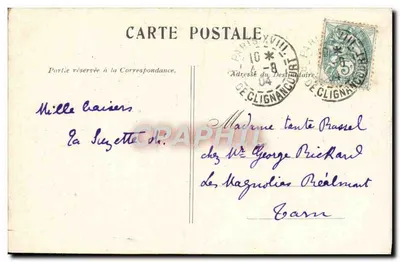 CARTE POSTALE
Partie réservée à la Correspondance.
Adresse du Destinataire
PARIS XVIII
10 *
-8
04
DE CLIGNANCOURT
Mille baisers
ta Suzette
Madame tante Russel
chez Mr George Rickard
Les Magnolias Réalmont
Tarn